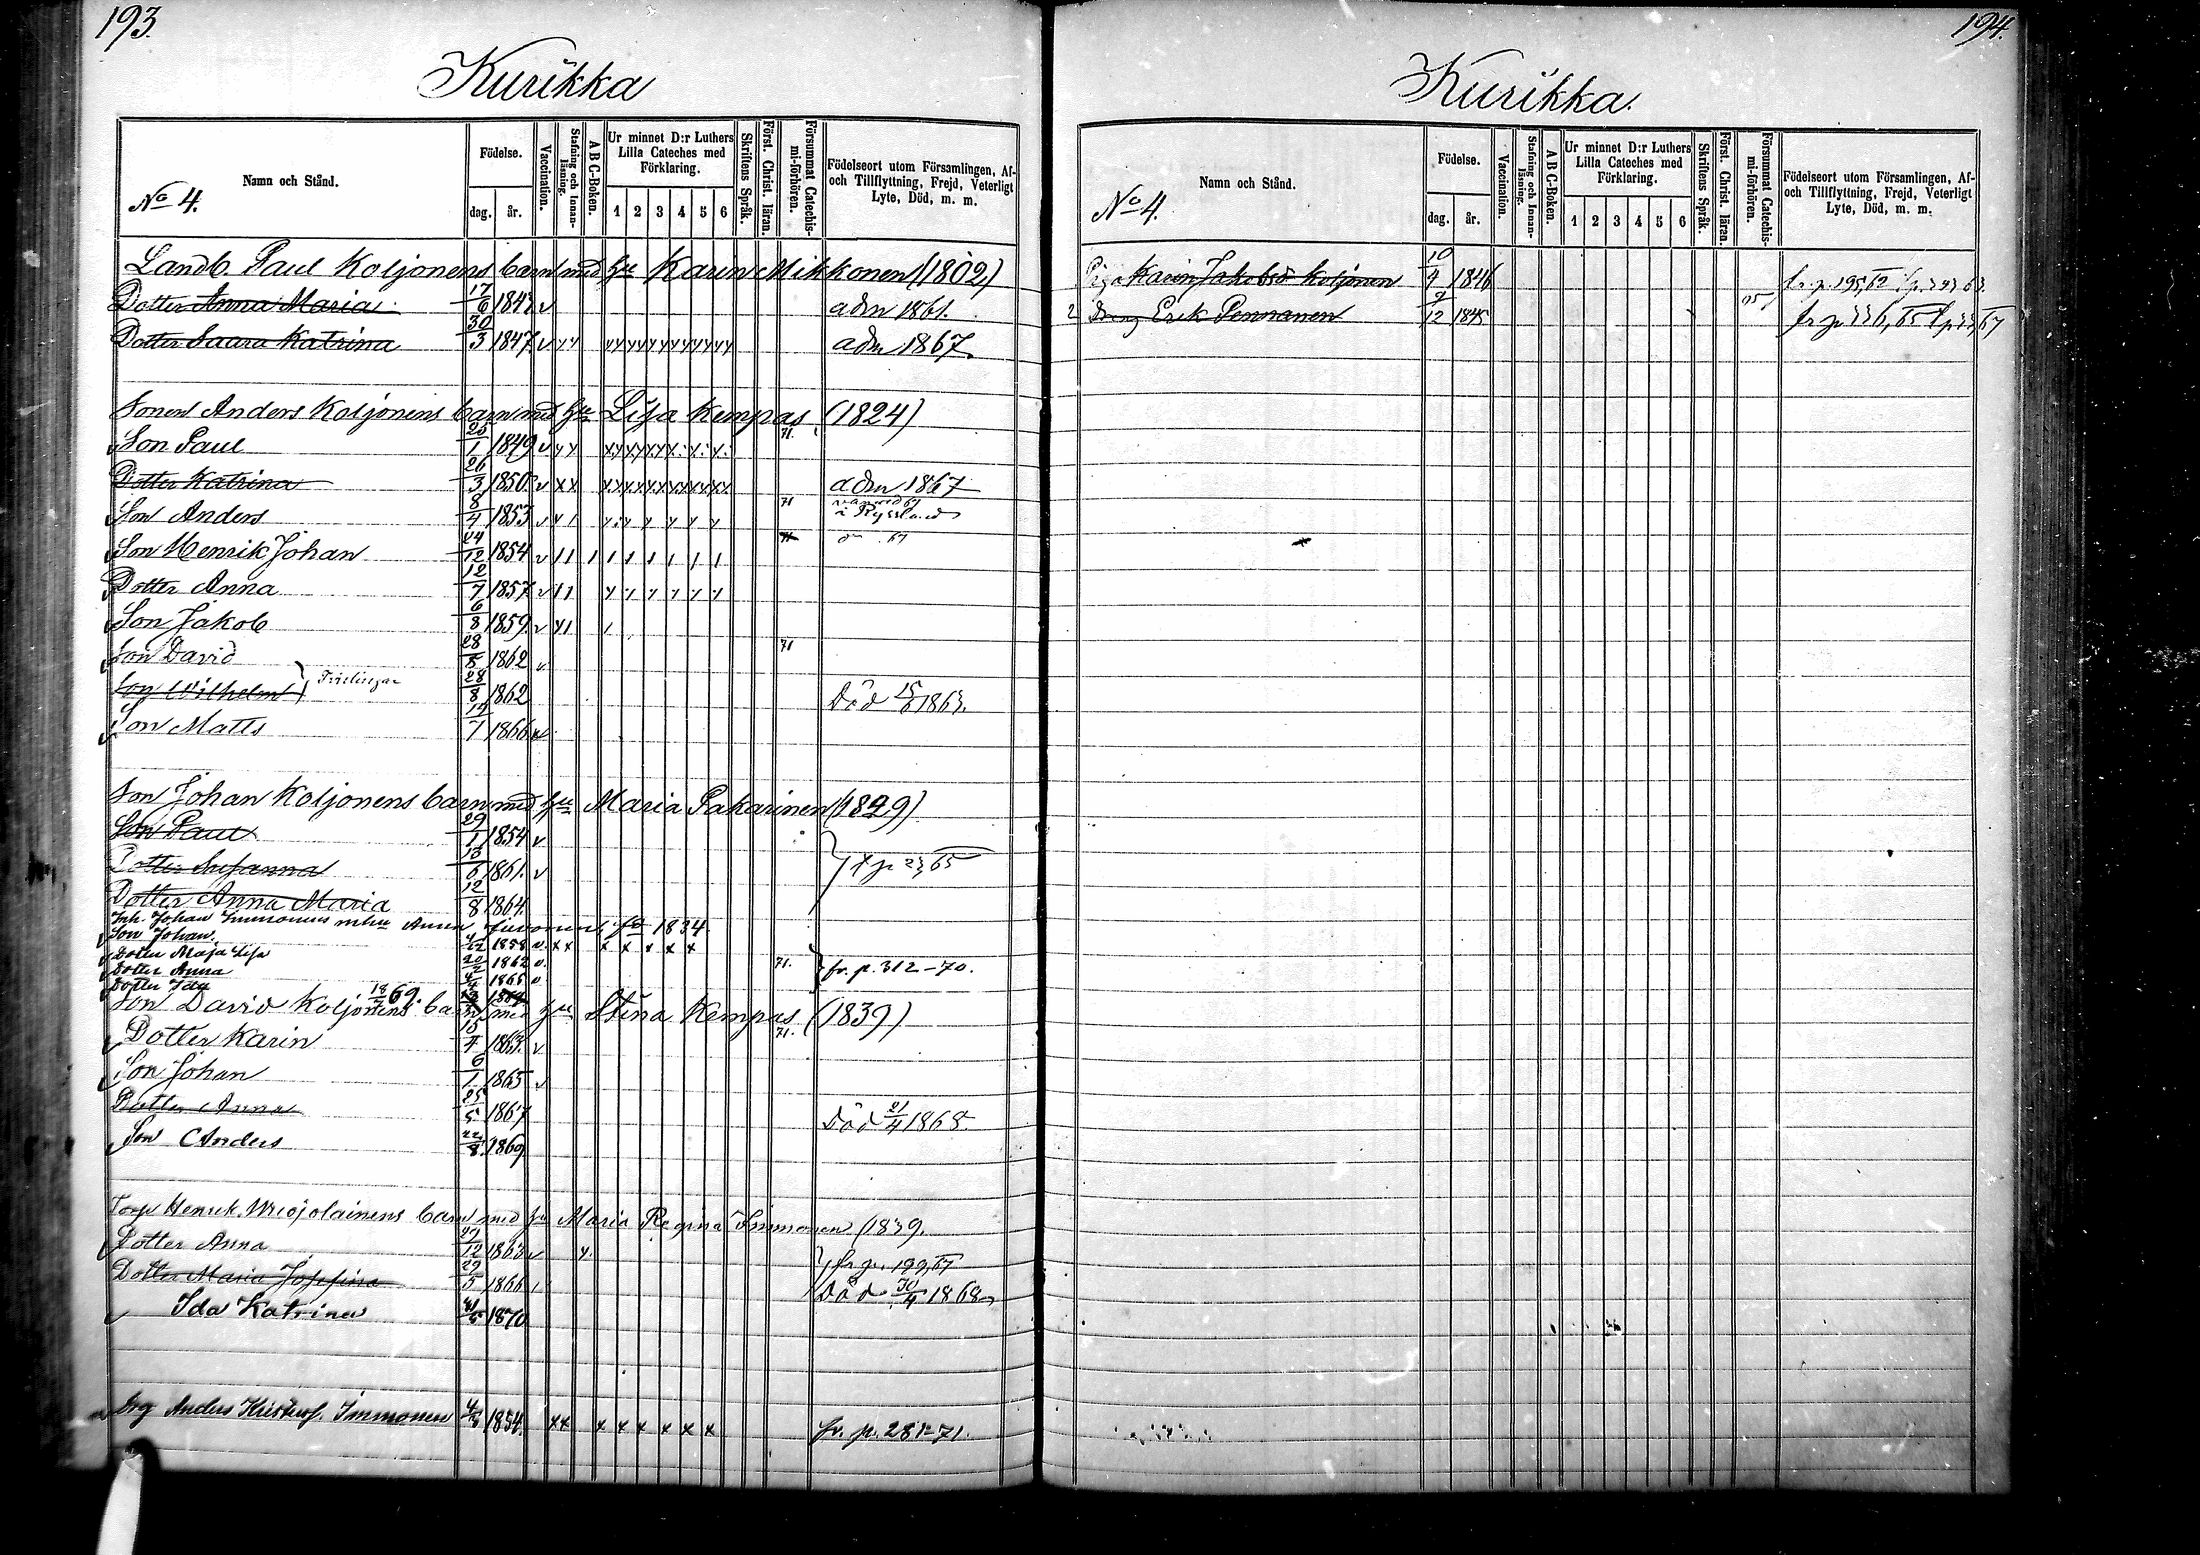 193.
Kurikka
No 4.
Namn och Stånd.
Födelse.
dag. år.
Vaccination.
Stafning och Innanläsning.
A B C-Boken.
Ur minnet D:r Luthers Lilla Cateches med Förklaring.
1 2 3 4 5 6
Skriftens Språk.
Först. Christ. läran.
Försummat Catechismi-förhören.
Födelseort utom Församlingen, Af- och Tillflyttning, Frejd, Veterligt Lyte, Död, m. m.
Landb. Paul Koljonens barn med hu Karin Mikkonen (1802)
Dotter Anna Maria 17/6 184 v adm 1861.
Dotter Saara Katrina 30/3 1847 v adm 1867.
Sonen Anders Koljonens barn med hu Lisa Kempas (1824)
Son Paul 25/1 1849 v 71.
Dotter Katrina 26/3 1850 v adm 1867
Son Anders 8/4 1853 v 71 i Ryssland
Son Henrik Johan 24/12 1854 v 67
Dotter Anna 12/7 1857 v
Son Jakob 6/8 1859 v
Son David 28/8 1862 v 71
Son Vilhelm Tvillingar 28/8 1862 Död 1863.
Son Matts 14/7 1866 v
Son Johan Koljonens barn med hu Maria Pakarinen (1829)
Son Paul 29/1 1854 v
Dotter Susanna 13/6 1861. v 65
Dotter Anna Maria 12/8 1864.
Inh. Johan Immonens m hu Anna 1834
Son Johan. 1858 v. x x x x x x x
Dotter Maja Lisa 20/2 1862 v. 71. fr. p. 312-70.
Dotter Anna 1865 v
Dotter Ida 1869.
Son David Koljonens barn med hu Stina Kempas (1839)
Dotter Karin 15/4 1863. v 71.
Son Johan 6/1 1865 v
Dotter Anna 25/5 1867 Död 21/4 1868.
Son Anders 22/8 1869
Torp Henrik barn med hu Maria Regina Immonen (1839.
Dotter Anna 27/12 1863 v fr p. 199, 67
Dotter Maria Josefina 29/5 1866 Död 30/4 1868
Ida Katrina 1870
Drg Anders Kristof. Immonen 4/8 1854. x x x x x x x x fr. p. 281-71.
194.
Kurikka.
No 4.
Namn och Stånd.
Födelse.
dag. år.
Vaccination.
Stafning och Innanläsning.
A B C-Boken.
Ur minnet D:r Luthers Lilla Cateches med Förklaring.
1 2 3 4 5 6
Skriftens Språk.
Först. Christ. läran.
Försummat Catechismi-förhören.
Födelseort utom Församlingen, Af- och Tillflyttning, Frejd, Veterligt Lyte, Död, m. m.
Piga Karin Jakobsd Koljonen 10/4 1846 fr. p. 195, 62
2 Dreng Erik Pennanen 12 1845